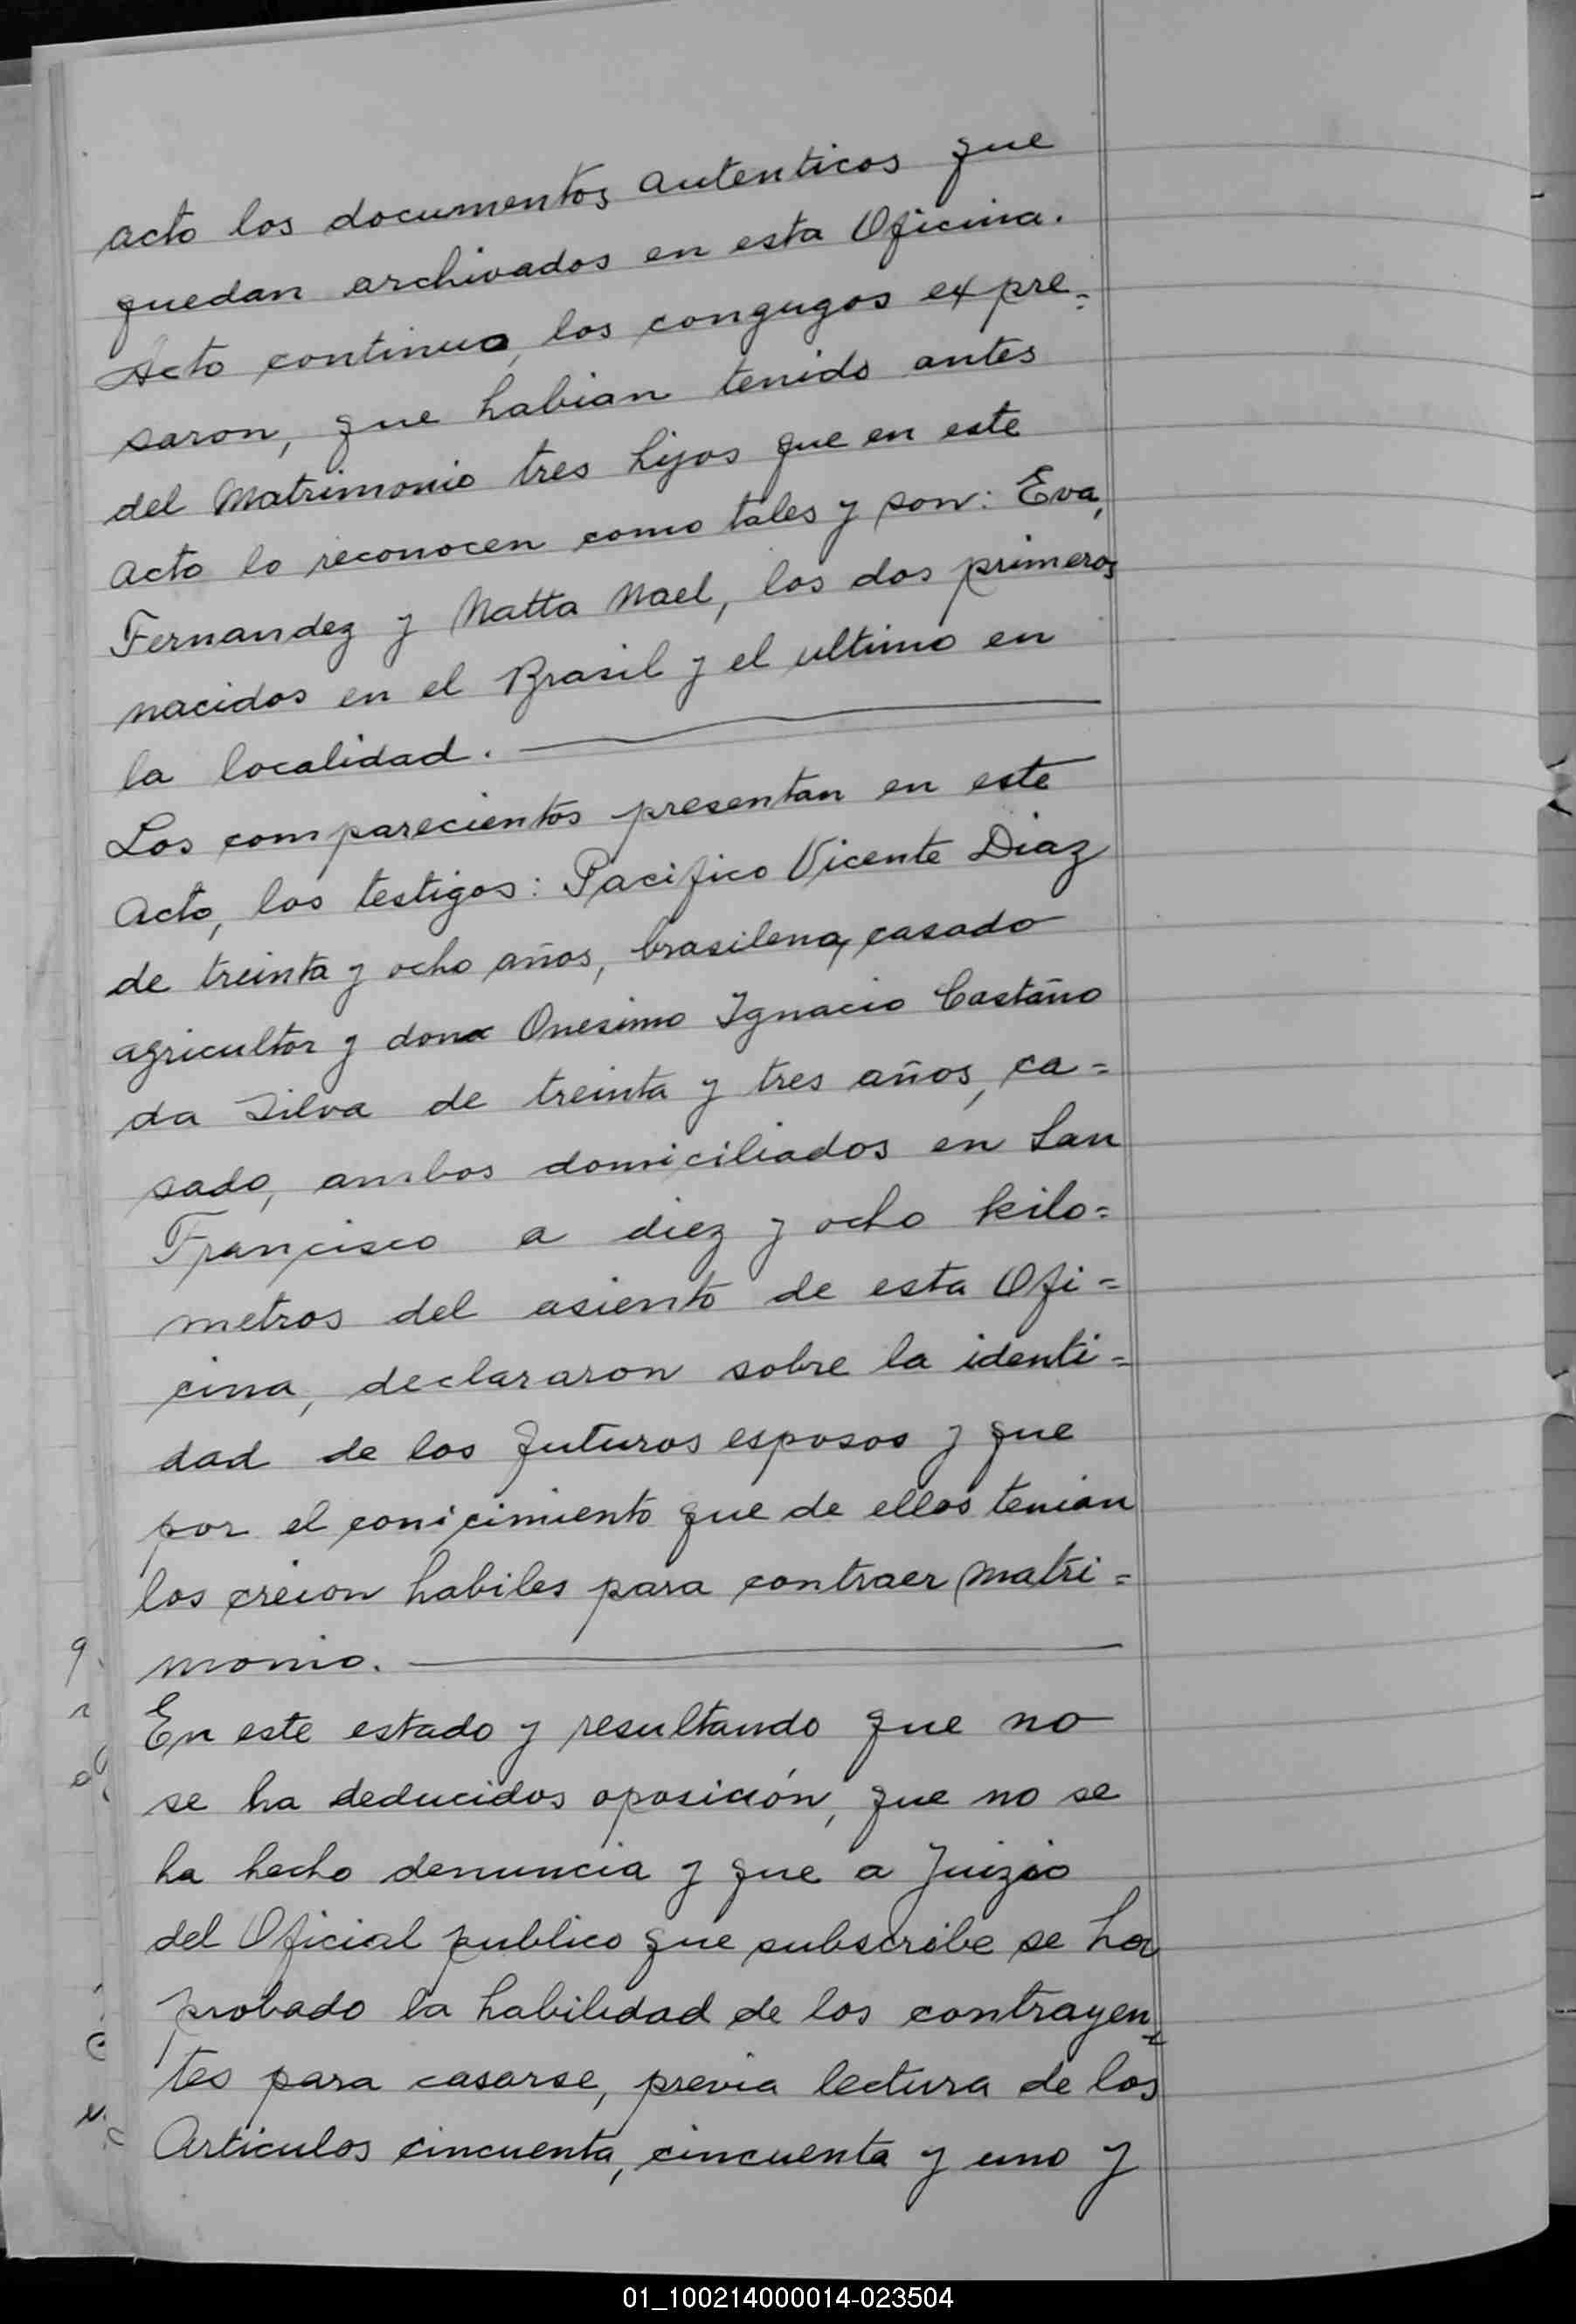 acto los documentos autenticos que
quedan archivados en esta Oficina.
Acto continuo, los congugos expre=
saron, que habian tenido antes
del Matrimonio tres hijos que en este
acto lo reconocen como tales y son: Eva,
Fernandez y Natta Nael, los dos primeros
nacidos en el Brasil y el ultimo en
la localidad.
Los comparecientos presentan en este
acto, los testigos: Pacifico Vicente Diaz
de treinta y ocho años, brasilena, casado
agricultor y dona Onesimo Ignacio Castaño
da Silva de treinta y tres años, ca=
sado, ambos domiciliados en San
Francisco a diez y ocho kilo=
metros del asiento de esta Ofi=
cina, declararon sobre la identi=
dad de los futuros esposos y que
por el conicimiento que de ellos tenian
los creion habiles para contraer matri=
monio.
En este estado y resultando que no
se ha deducidos oposición, que no se
ha hecho denuncia y que a Juizio
del Oficial publico que subscribe se ha
probado la habilidad de los contrayen=
tes para casarse, previa lectura de los
Articulos cincuenta, cincuenta y uno y
01_100214000014-023504